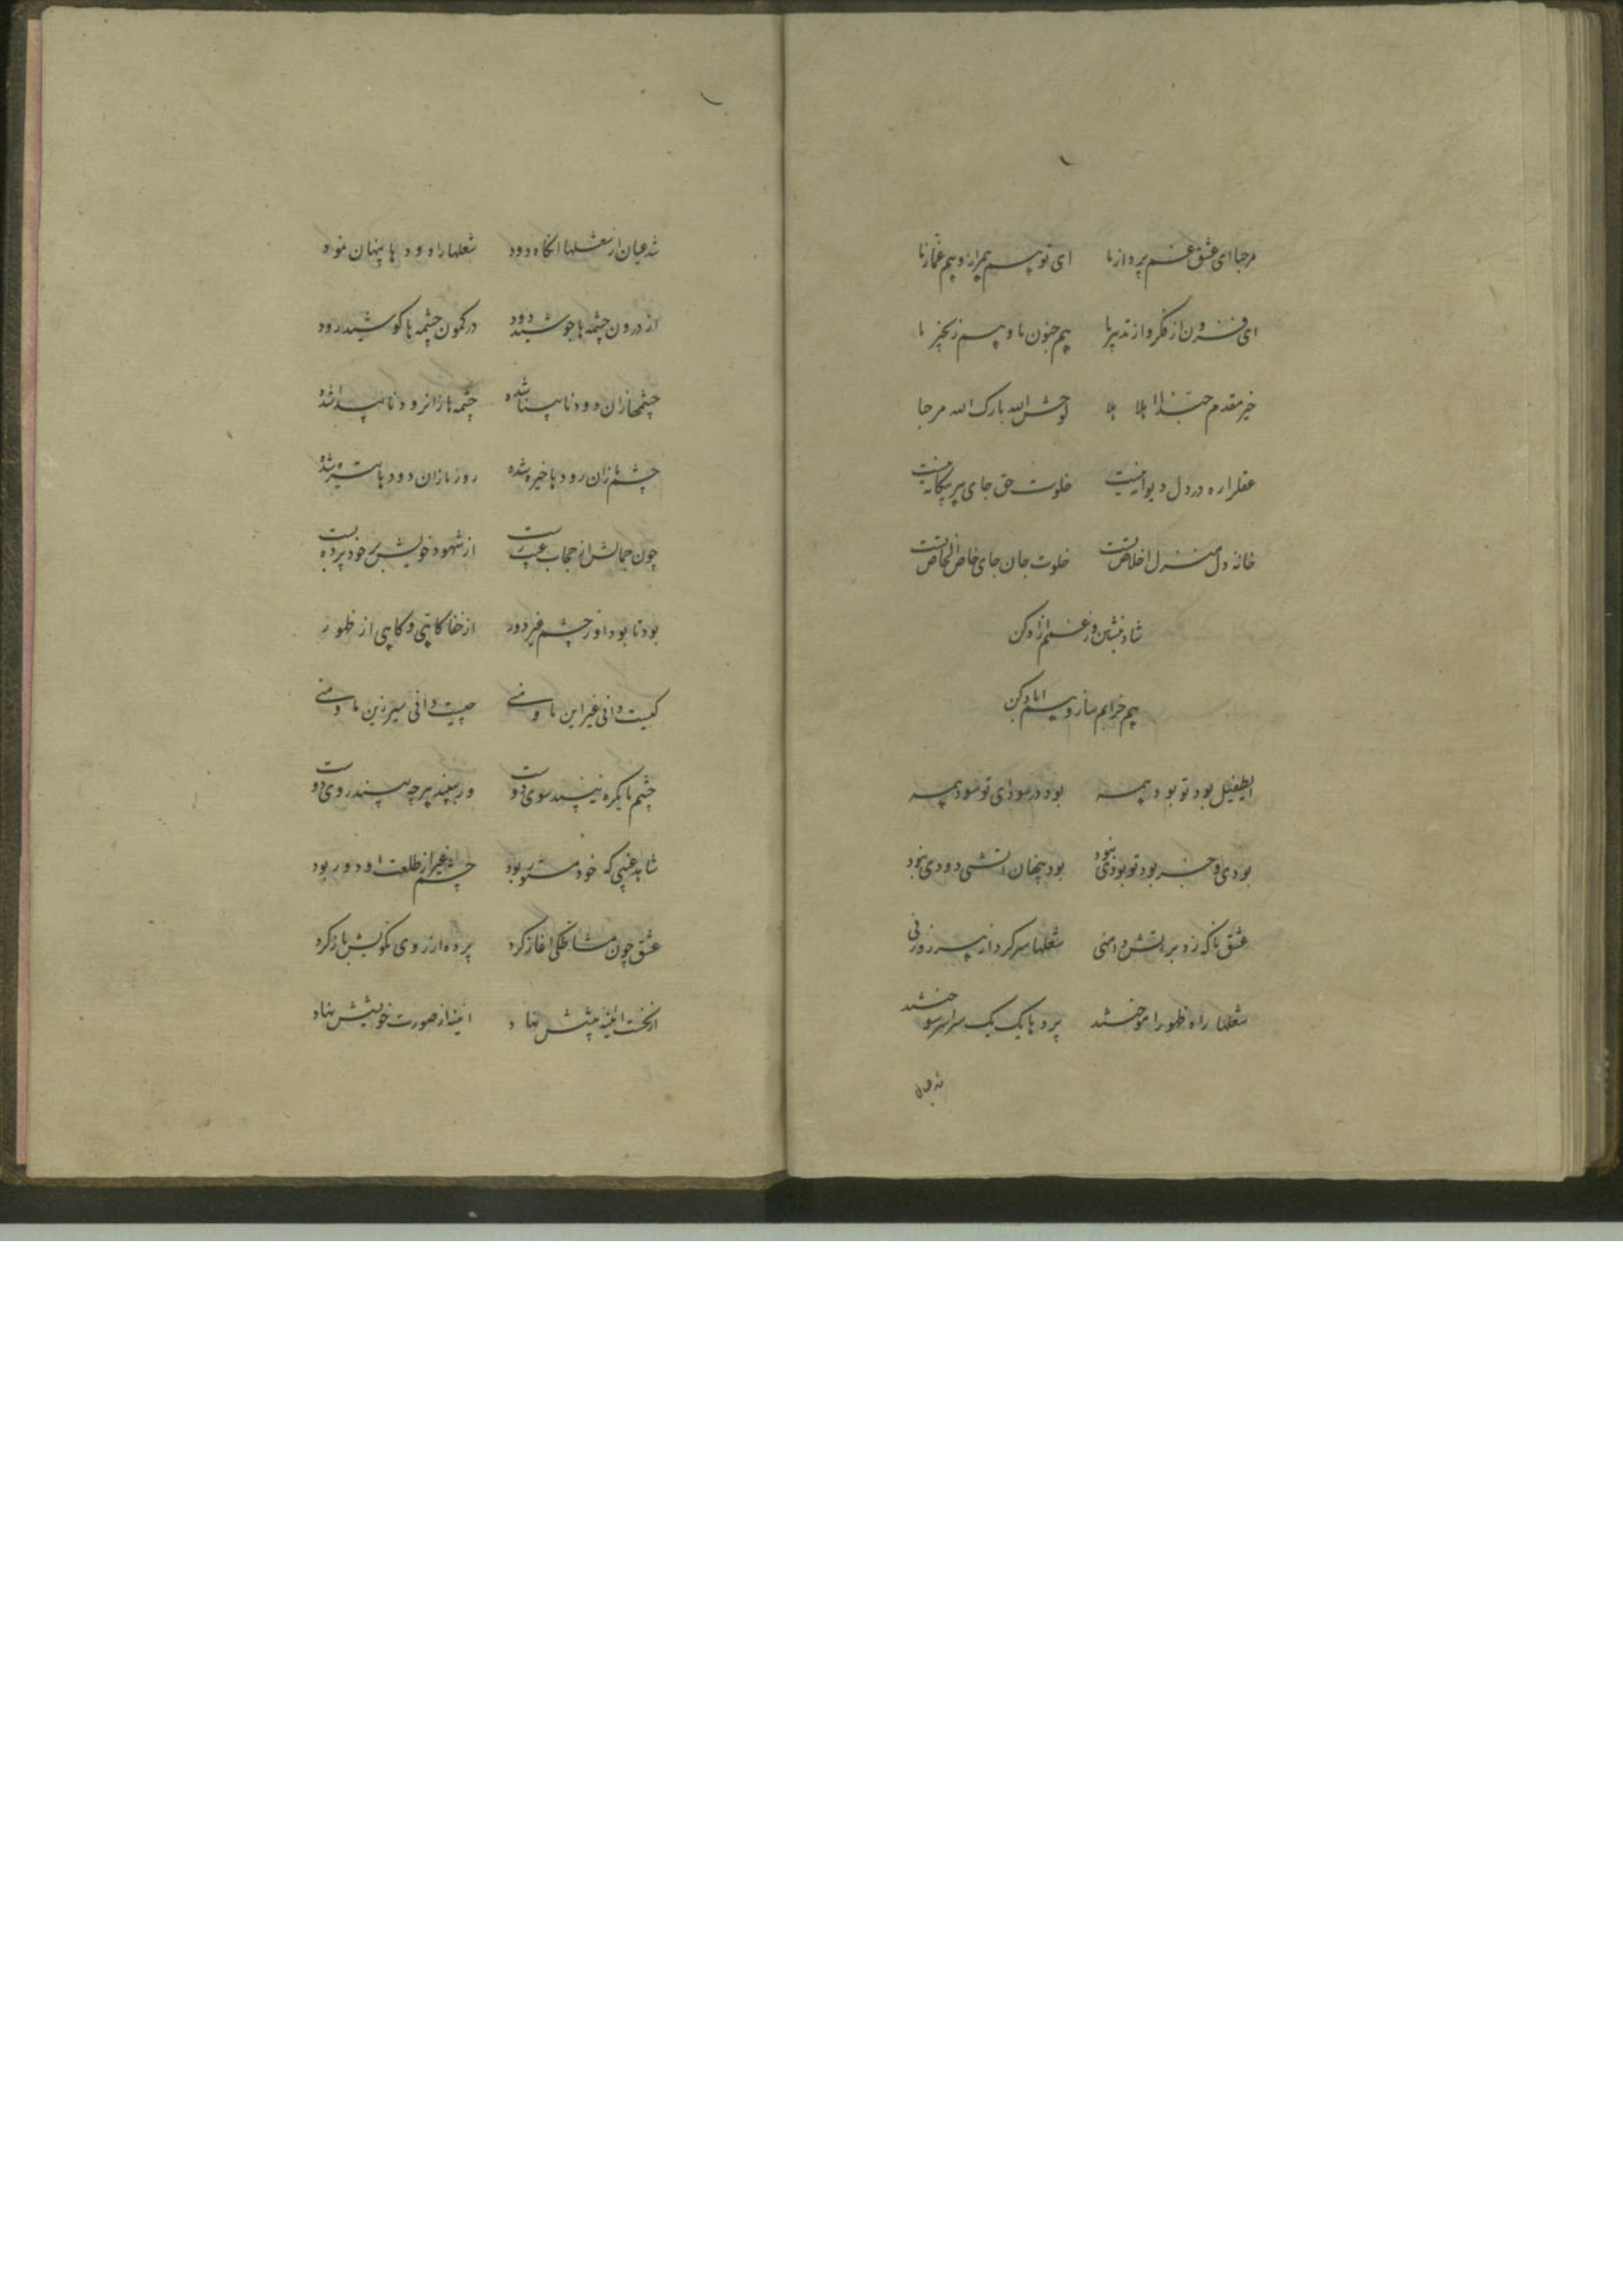 مرحبا ای عشق غم پرداز ما ای تو هم همراز و هم غماز ما
ای فزون از فکر و از تدبیر ما هم جنون ما و هم زنجیر ما
خیر مقدم حبذا اهلا هلا اوحش الله بارک الله مرحبا
عقلرا ره در دل دیوانه نیست خلوت حق جای هر بیکانه نیست
خانه دل منزل اخلاص تست خلوت جان جای خاص الخاص تست
شاد بنشین و ز غمم ازاد کن
هم خرابم ساز و هم اباد کن
ای طفیل بود تو بود همه بود در بود ای تو بود همه
بودی و جز بود تو بودی نبود بود پنهان اتشی دودی نبود
عشق ناکه زد بر اتش دامنی شعلها سر کرد از هر روزنی
شعلها راه ظهور اموختند پردها یک یک سراسر سوختند
شد عیان
شد عیان از شعلها انکاه دود شعلها را دودها پنهان نمود
از درون چشمه ها جوشید دود در کمون چشمه ها کوشید رود
چشمها زان دود نابینا شده چشمه ها زان رود ناپیدا شده
چشم ها زان رودها خیره شده روزها زان دودها تیره شده
چون جمالش از حجاب غیب از شهود خویش بر خود پرده بست
بود تا بود او ز چشم غیر دور از خفا کاهی و کاهی از ظهور
کیست دانی غیر این ما و منی چیست دانی سیر زین ما و منی
چشم ما یکره نبیند سوی دوست ور ببیند هر چه بیند روی دوست
شاهد غیبی که خود مستور بود چشم غیر از طلعت او دور بود
عشق چون مشاطکی اغاز کرد پرده از روی نکویش باز کرد
از نخست ائینه پیشش نهاد اینه از صورت خویشش نهاد